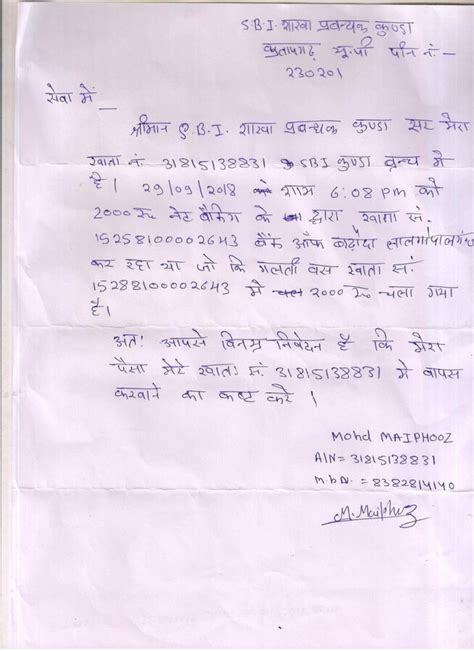 S.B.I. शाखा प्रबन्धक कुण्डा
प्रतापगढ़ यू.पी पीन नं:-
230201
सेवा में _
श्रीमान S.B.I. शाखा प्रबन्धक कुण्डा सर मेरा
खाता नं: 31815138831 SBI कुण्डा ब्रन्च में
है। 29/09/2018 शाम 6:08 PM को
2000 रू नेट बैंकिग के द्वारा खाता नं.
15258100002643 बैंक ऑफ बड़ोदा लालगोपालगंज
कर रहा था जो कि गलती वस खाता नं:
15288100002643 में 2000 रू चला गया
है।
अतः आपसे विनम्र निवेदन है कि मेरा
पैसा मेरे खातः नं: 31815138831 मे वापस
करवाने का कष्ट करे।
Mohd MAIPHOOZ
A/N= 31815138831
m.b.N. = 8382814140
M.Maiphuz